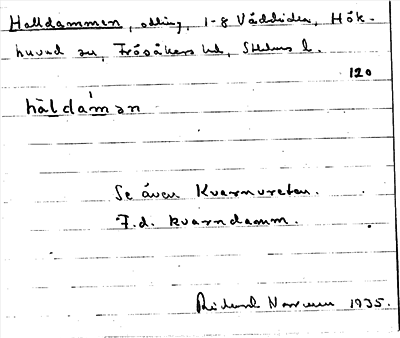 Halldammen, odling, 1-8 Väddika, Hök-
huvud sn, Frösåkers hd, Sthlms l.
120
hàldámən
Se även Kvarnvreten.
F.d. kvarndamm.
Rickard Norrman 1935.